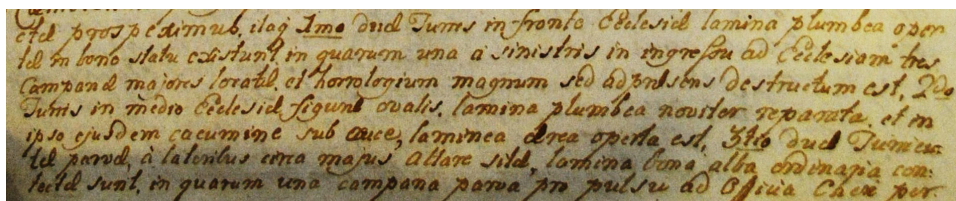 ctæ prospeximus, itaq 1mo duæ Turris in fronte Ecclesiæ lamina plumbea oper
tæ in bono statu existunt, in quarum una a sinistris in ingressu ad Ecclesiam tres
Campanæ majores locatæ, et horrologium magnum sed ad præsens destructum est, 2do
Turris in medio Ecclesiæ figuræ ovalis, lamina plumbea noviter reparata, et in
ipso ejusdem cacumine sub cruce, laminea ærea operta est, 3tio duæ Turricu-
læ parvæ, à lateribus circa majus Altare sitæ, lamina bona alba ordinaria con:
tectæ sunt, in quarum una campana parva pro pulsu ad Officia Chori per-